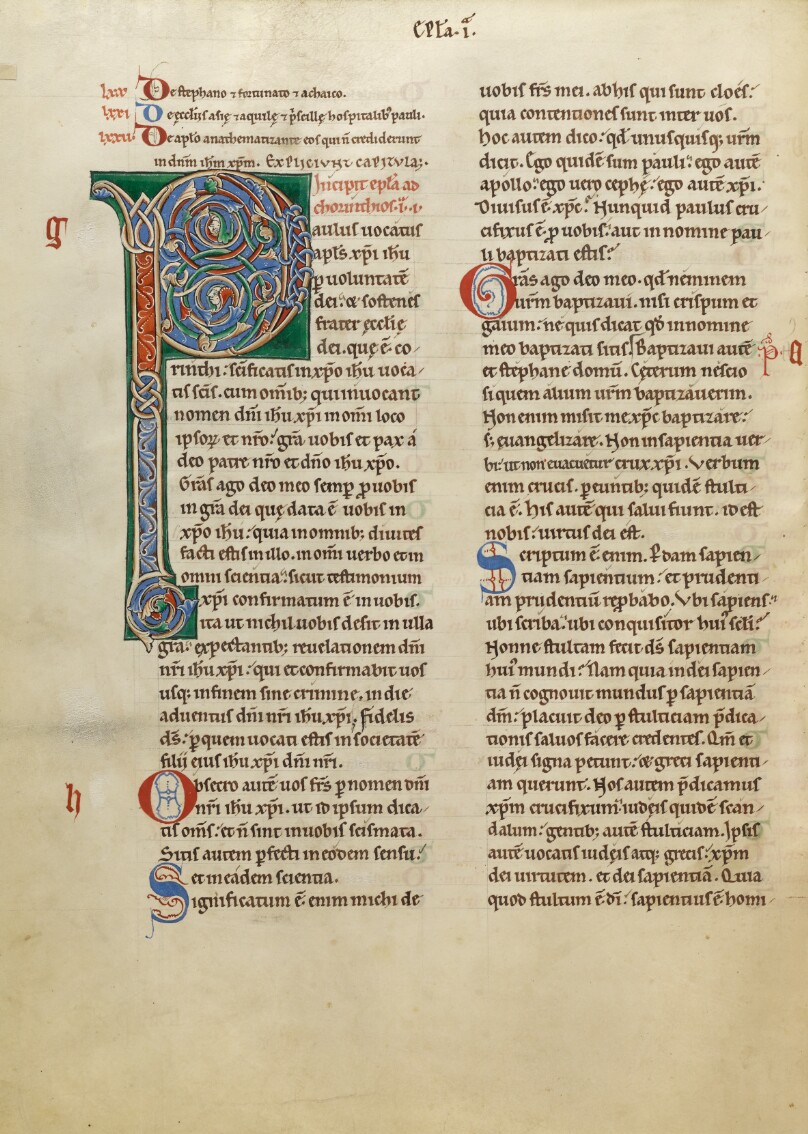 Epła · i ·
lxx De stephano ⁊ fortunato ⁊ achaico.
lxxi De ęccłiis asię ⁊ aquilę ⁊ p̃scillę hospitalib; pauli.
lxxii De apło anathematizante eos qui ñ crediderunt
in dnm̄ ihm̄ xpm̄. Expliciunt capitula;.
Incipit epła ad
chorinthios · i · i ·
g
Paulus uocatus
apłs xp̄i ihu
ꝑ uoluntatē
dei · et sostenes
frater ęcclię
dei. quę ē co
rinthi: scīficatis in xp̄o ihu uoca
tis scīs. cum omīb; qui inuocant
nomen dn̄i ihu xp̄i in omī loco
ipsoꝝ et nr̄o: gr̄a uobis et pax a
deo patre nr̄o et dn̄o ihu xp̄o.
Gr̄as ago deo meo semꝑ ꝓ uobis
in gr̄a dei quę data ē uobis in
xp̄o ihu: quia in omnib; diuites
facti estis in illo. in omī uerbo et in
omni scientia: sicut testimonium
xp̄i confirmatum ē in uobis.
ita ut nichil uobis desit in ulla
gr̄a: expectantib; reuelationem dn̄i
nr̄i ihu xp̄i: qui et confirmabit uos
usq; in finem sine crimine, in die
aduentus dn̄i nr̄i ihu xp̄i. fidelis
ds̄: ꝑ quem uocati estis in societatē
filii eius ihu xp̄i dn̄i nr̄i.
h
Obsecro autē uos fr̄s ꝑ nomen dn̄i
nr̄i ihu xp̄i. ut id ipsum dica
tis om̄s: et ñ sint in uobis scismata.
Sitis autem ꝑfecti in eodem sensu:
et in eadem scientia.
Significatum ē enim michi de
uobis fr̄s mei. ab his qui sunt cloēs:
quia contentiones sunt inter uos.
Hoc autem dico: qd̄ unusquisq; urm̄
dicit. Ego quidē sum pauli: ego autē
apollo: ego uero cephę: ego autē xp̄i.
Diuisus ē xp̄c: Nunquid paulus cru
cifixus ē ꝓ uobis: aut in nomine pau
li baptizati estis:
Gr̄as ago deo meo. qd̄ neminem
urm̄ baptizaui. nisi crispum et
gaium: ne quis dicat qd̄ in nomine
meo baptizati sitis. Baptizaui autē
et stephanę domū. Ceterum nescio
si quem alium urm̄ baptizauerim.
Non enim misit me xp̄c baptizare:
s; euangelizare. Non in sapientia uer
bi: ut non euacuetur crux xp̄i. Verbum
enim crucis. ꝑeuntib; quidē stulti
cia ē. His autē qui salui fiunt. id est
nobis: uirtus dei est.
Scriptum ē enim. Ꝑdam sapien
tiam sapientium: et prudenti
am prudentiū reꝓbabo. Vbi sapiens:
ubi scriba: ubi conquisitor hui᷒ sełi:
Nonne stultam fecit ds̄ sapientiam
hui᷒ mundi: Nam quia in dei sapien
tia ñ cognouit mundus ꝑ sapientiā
dm̄: placuit deo ꝑ stulticiam p̄dica
tionis saluos facere credentes. Qm̄ et
iudęi signa petunt: et greci sapienti
am querunt. Nos autem p̄dicamus
xpm̄ crucifixum: iudęis quidē scan
dalum: gentib; autē stulticiam. Ipsis
autē uocatis iudęis atq; grecis: xpm̄
dei uirtutem. et dei sapientiā. Quia
quod stultum ē dī: sapientius ē homi